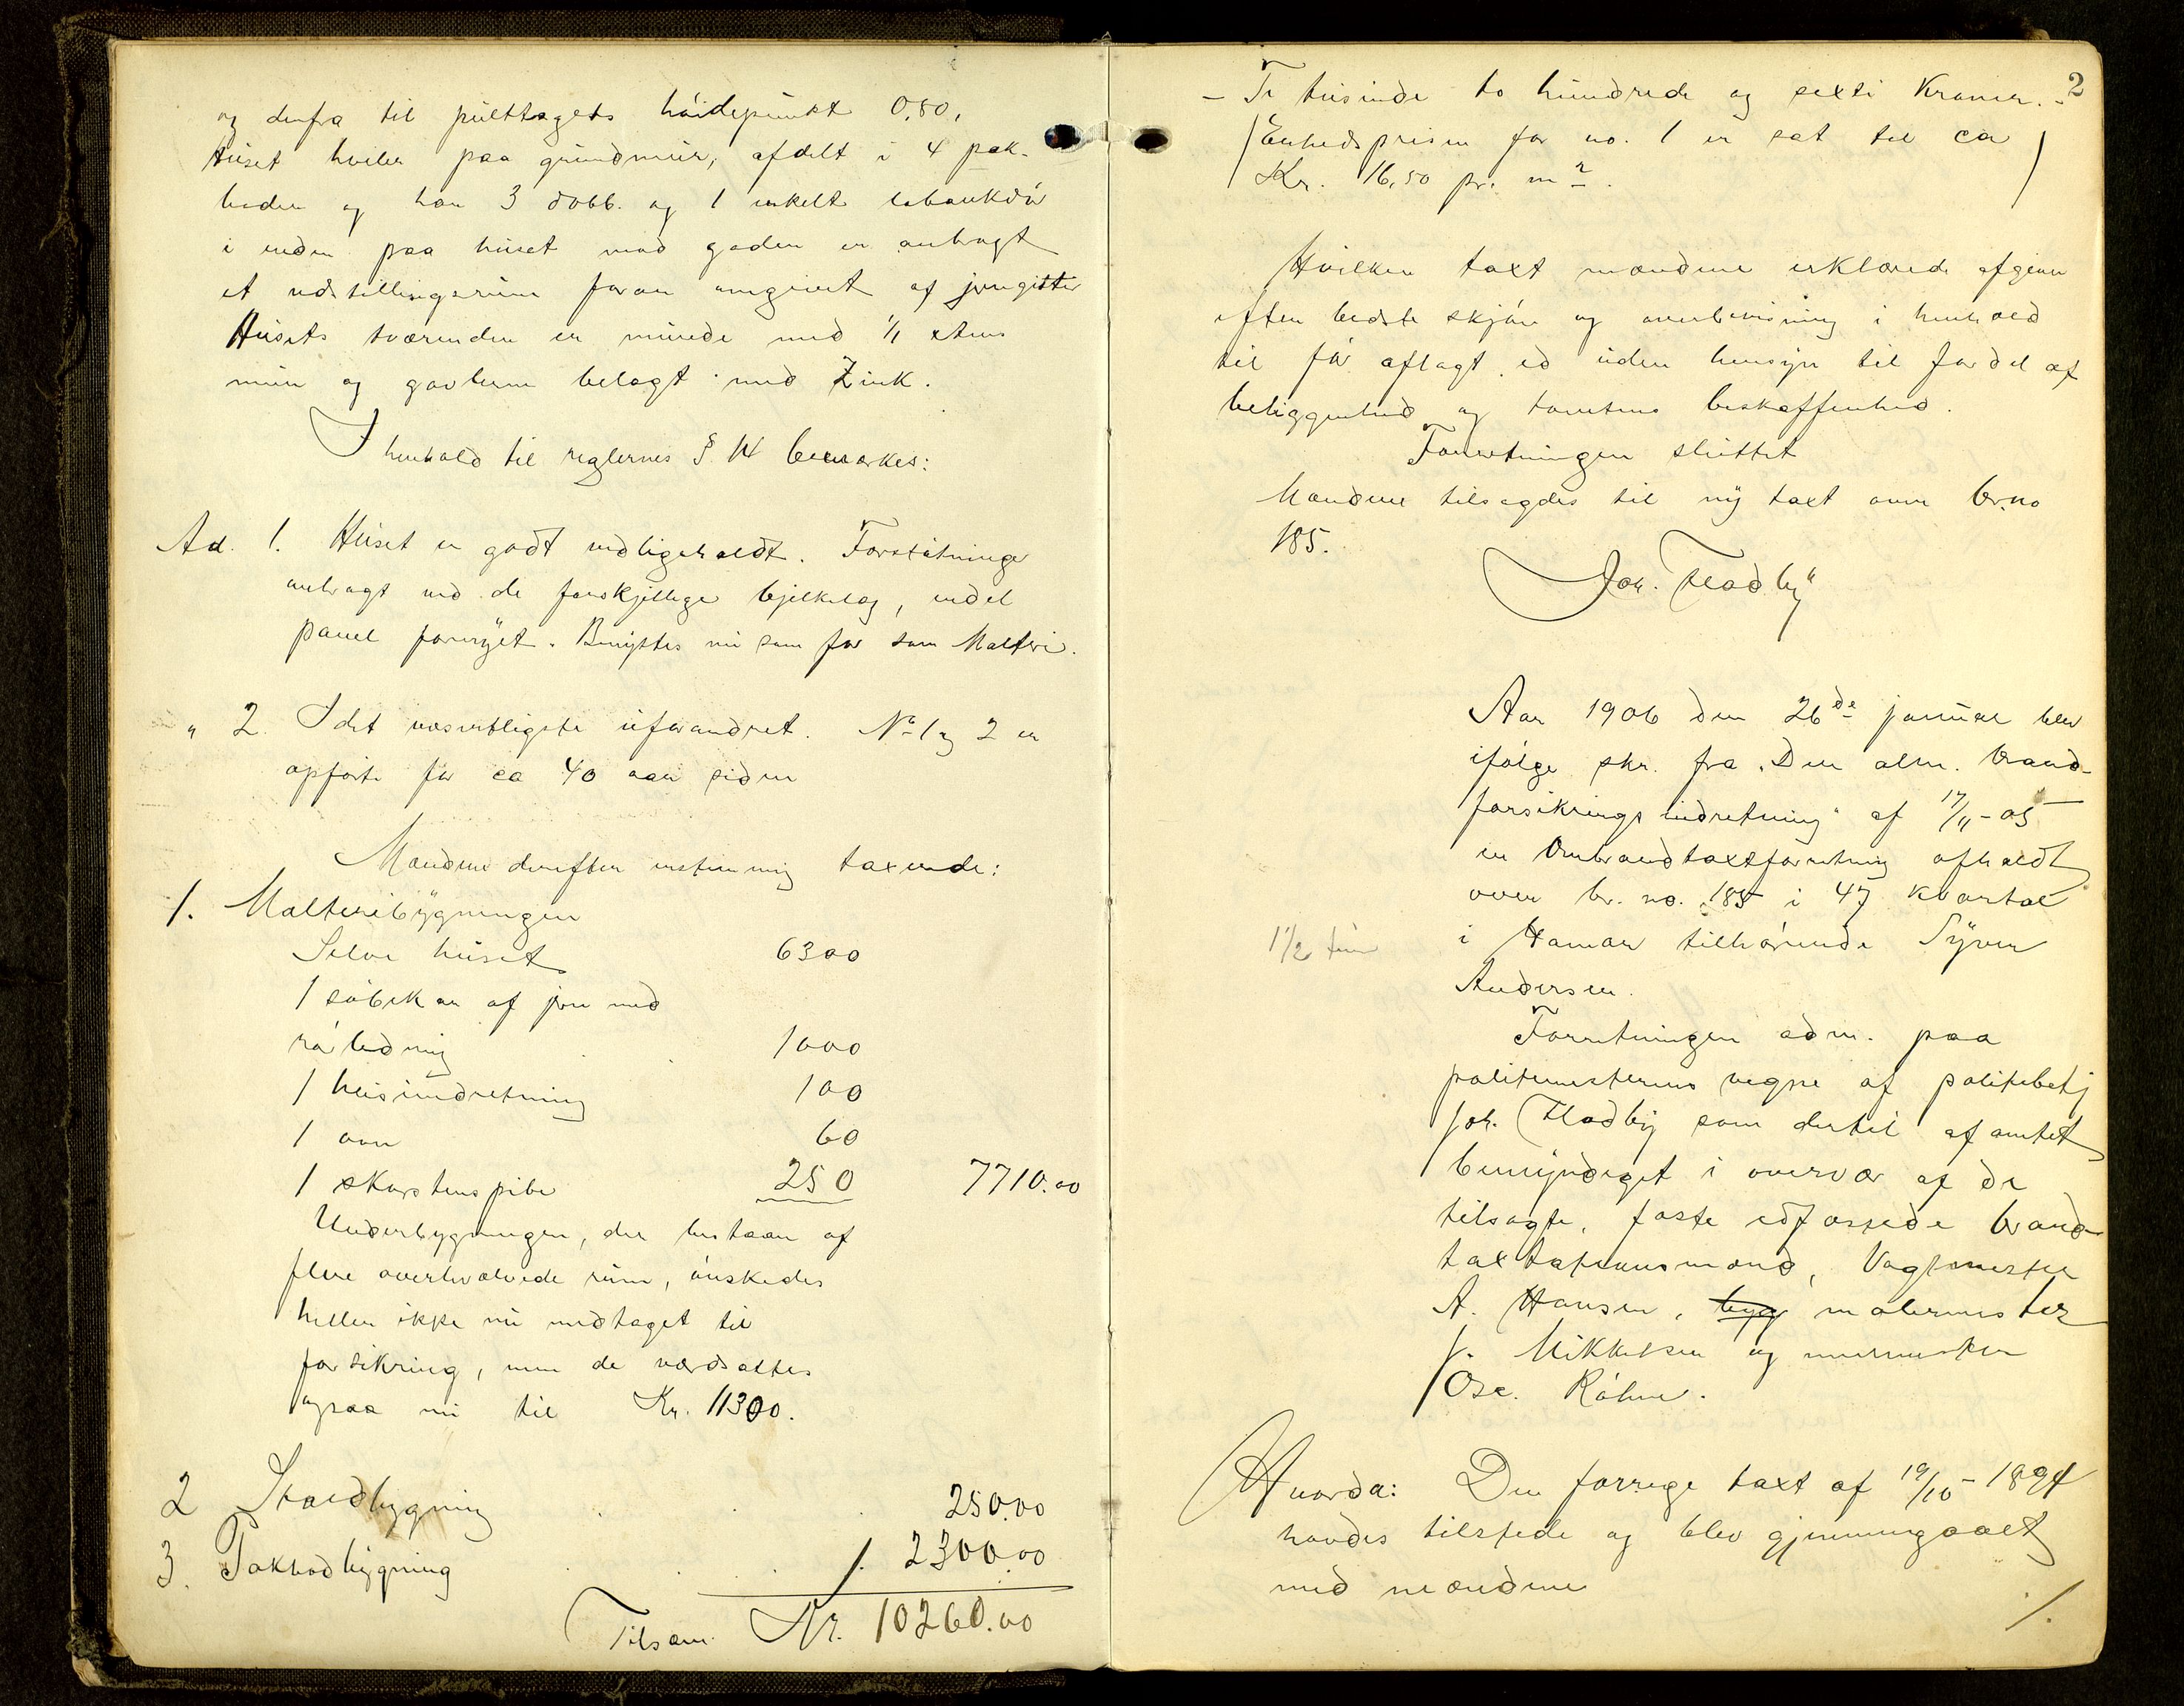 og derfra til pulttagets høidepunkt 0,80,
Huset hviler paa grundmur, afdelt i 4 pak-
boder og har 3 dobb. og 1 enkelt labankdør
i enden paa huset mod gaden er anbragt
et udstillingsrum foran omgivet af jerngitter
Husets tværenden er murede med 1/1 stens
mur og gavlerne belagt med Zink.
I henhold til reglernes § 14 bemærkes:
Ad. 1. Huset er godt vedligeholdt. Forstøtninger
anbragt ved de forskjellige bjelkelag, endel
panel fornyet. Benyttes nu som før som Malteri.
" 2. I det væsentligste uforandret. No 1 og 2 er
opført for ca 40 aar siden
Mændene derefter enstemmig taxerede:
1. Malteribygningen
Selve huset 6300
1 støbekar af jern med
rørledning 1000
1 heisindretning 100
1 ovn 60
1 skorstenspibe 250 7710.00
Underbygningen, der bestaar af
flere overhvælvede rum, ønskedes
heller ikke nu medtaget til
forsikring, men de værdsattes
ogsaa nu til Kr. 11300.
2 Staldbygning 250.00
3. Pakbodbygning /. 2300.00
Tilsam. Kr. 10260.00
2
- Ti tusinde to hundrede og sexti Kroner. -
(Enhedsprisen for no. 1 er sat til ca
Kr. 16,50 pr. m2.)
Hvilken taxt mændene erklærede afgiven
efter bedste skjøn og overbevisning i henhold
til før aflagt ed uden hensyn til fordel af
beliggenhed og tomtens beskaffenhed.
Forretningen sluttet
Mændene tilsagdes til ny taxt over br.no
185.
Joh. Fladby
Aar 1906 den 26de januar blev
ifølge skr. fra "Den alm. Brand-
forsikringsindretning" af 17/11-05
en Ombrandtaxtforretning afholdt
over br. no. 185 i 47 kvartal
1 1/2 time
i Hamar tilhørende Syver
Andersen.
Forretningen adm. paa
politimesterens vegne af politibetj
Joh. Fladby som dertil af amtet
bemyndiget i overvær af de
tilsagte, faste edfæstede brand-
taxtationsmænd, Vagtmester
A. Hansen, byg malermester
J. Mikkelsen og murmester
Osc. Røhne.
Hvorda: Den forrige taxt af 19/10-1894
havdes tilstede og blev gjennemgaaet
med mændene
/.